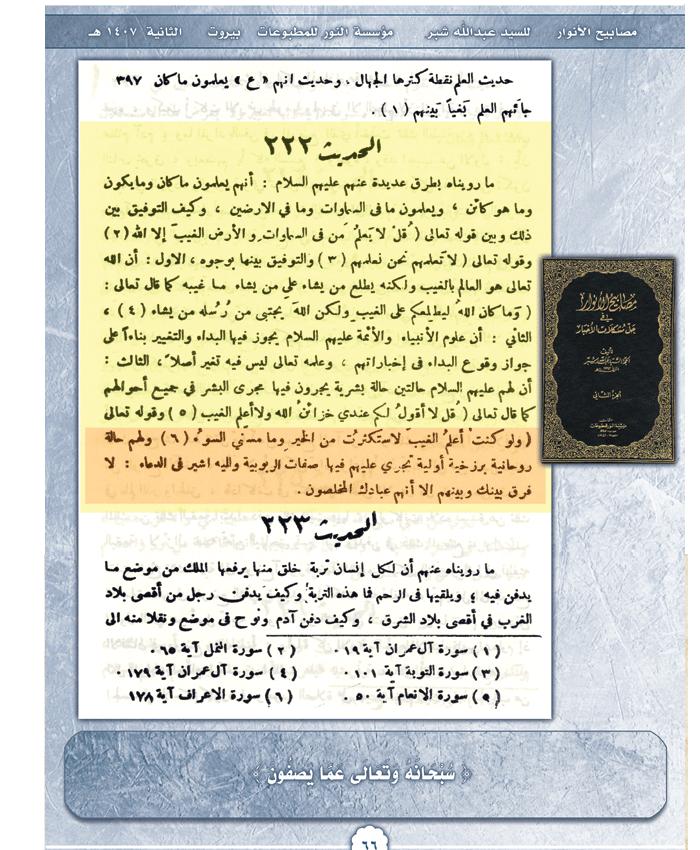 مصابيح الأنوار للسيد عبدالله شبر مؤسسة النور للمطبوعات بيروت الثانية ١٤٠٧ هـ
حديث العلم نقطة كثرها الجهال ، وحديث انهم « ع » يعلمون ما كان ٣٩٧
جائهم العلم بَغياً بينهم (١) .
الحديث ٢٢٢
ما رويناه بطرق عديدة عنهم عليهم السلام : أنهم يعلمون ما كان وما يكون
وما هو كائن ، ويعلمون ما في السماوات وما في الارضين ، وكيف التوفيق بين
ذلك وبين قوله تعالى ( قُلْ لا يَعلمُ مَن في السماوات والأرض الغيبَ إلا الله (٢)
وقوله تعالى ( لا تعلمهم نحن نعلمهم (٣) والتوفيق بينها بوجوه ، الاول : أن الله
تعالى هو العالم بالغيب ولكنه يطلع من يشاء على من يشاء ما غيبه كما قال تعالى :
( وما كان اللهُ ليطلعكم على الغيب ولكن اللهَ يجتبي من رُسله من يشاء (٤) ،
الثاني : أن علوم الأنبياء والأئمة عليهم السلام يجوز فيها البداء والتغيير بناءاً على
جواز وقوع البداء في إخباراتهم ، وعلمه تعالى ليس فيه تغير أصلاً ، الثالث :
أن لهم عليهم السلام حالتين حالة بشرية يجرون فيها مجرى البشر في جميع أحوالهم
كما قال تعالى ( قُل لا أقولُ لكم عندي خزائنُ الله ولا أعلم الغيب (٥) وقوله تعالى
( ولو كنتُ أعلم الغيب لاستكثرتُ من الخير وما مسّني السوءُ (٦) ولهم حالة
روحانية برزخية أولية تجري عليهم فيها صفات الربوبية واليه اشير في الدعاء : لا
فرق بينك وبينهم الا أنهم عبادك المخلصون .
الحديث ٢٢٣
ما رويناه عنهم أن لكل إنسان تربة خلق منها يرفعها الملك من موضع ما
يدفن فيه ، ويلقيها في الرحم فما هذه التربة وكيف يدفن رجل من أقصى بلاد
الغرب في أقصى بلاد الشرق ، وكيف دفن آدم ونوح في موضع ونقلا منه الى
(١) سورة آل عمران آية ١٩ . (٢) سورة النمل آية ٦٥ .
(٣) سورة التوبة آية ١٠١ . (٤) سورة آل عمران آية ١٧٩ .
(٥) سورة الانعام آية ٥٠ . (٦) سورة الاعراف آية ١٧٨
مصابيح الأنوار
في
حل مشكلات الأخبار
الجزء الثاني
﴿ سُبْحَانَهُ وَتَعالى عَمّا يَصفُونَ ﴾
٦٦